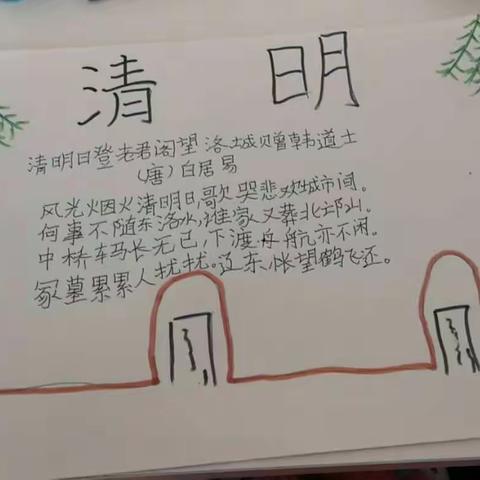 清明
清明日登老君阁望洛城赠韩道士
(唐)白居易
风光烟火清明日,歌哭悲欢城市间。
何事不随东洛水,谁家又葬北邙山。
中桥车马长无已,下渡舟航亦不闲。
冢墓累累人扰扰。辽东怅望鹤飞还。